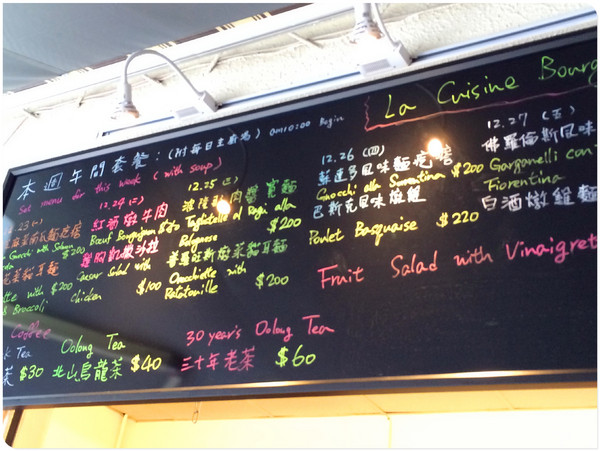 La Cuisine Bourg
本週午間套餐：(附每日主廚湯) am10:00 Begin
Set menu for this week (with soup)
12.23 (一)
$200
with $200
& Broccoli
12.24 (二)
紅酒燉牛肉
Boeuf Bourguignon
雞胸凱撒沙拉
Caesar Salad with
Chicken $100
12.25 (三)
波隆那肉醬寬麵
Tagliatelle al Ragù alla
Bolognese $200
普羅旺斯燉菜貓耳麵
Orecchiette with
Ratatouille $200
12.26 (四)
蘇連多風味麵疙瘩
Gnocchi alla Sorrentina $200
巴斯克風味燉雞
Poulet Basquaise $220
12.27 (五)
佛羅倫斯風味
Garganelli con
Fiorentina
白酒燉雞
Fruit Salad with Vinaigret
Coffee
Tea
茶 $30
Oolong Tea
北山烏龍茶 $40
30 year's Oolong Tea
三十年老茶 $60